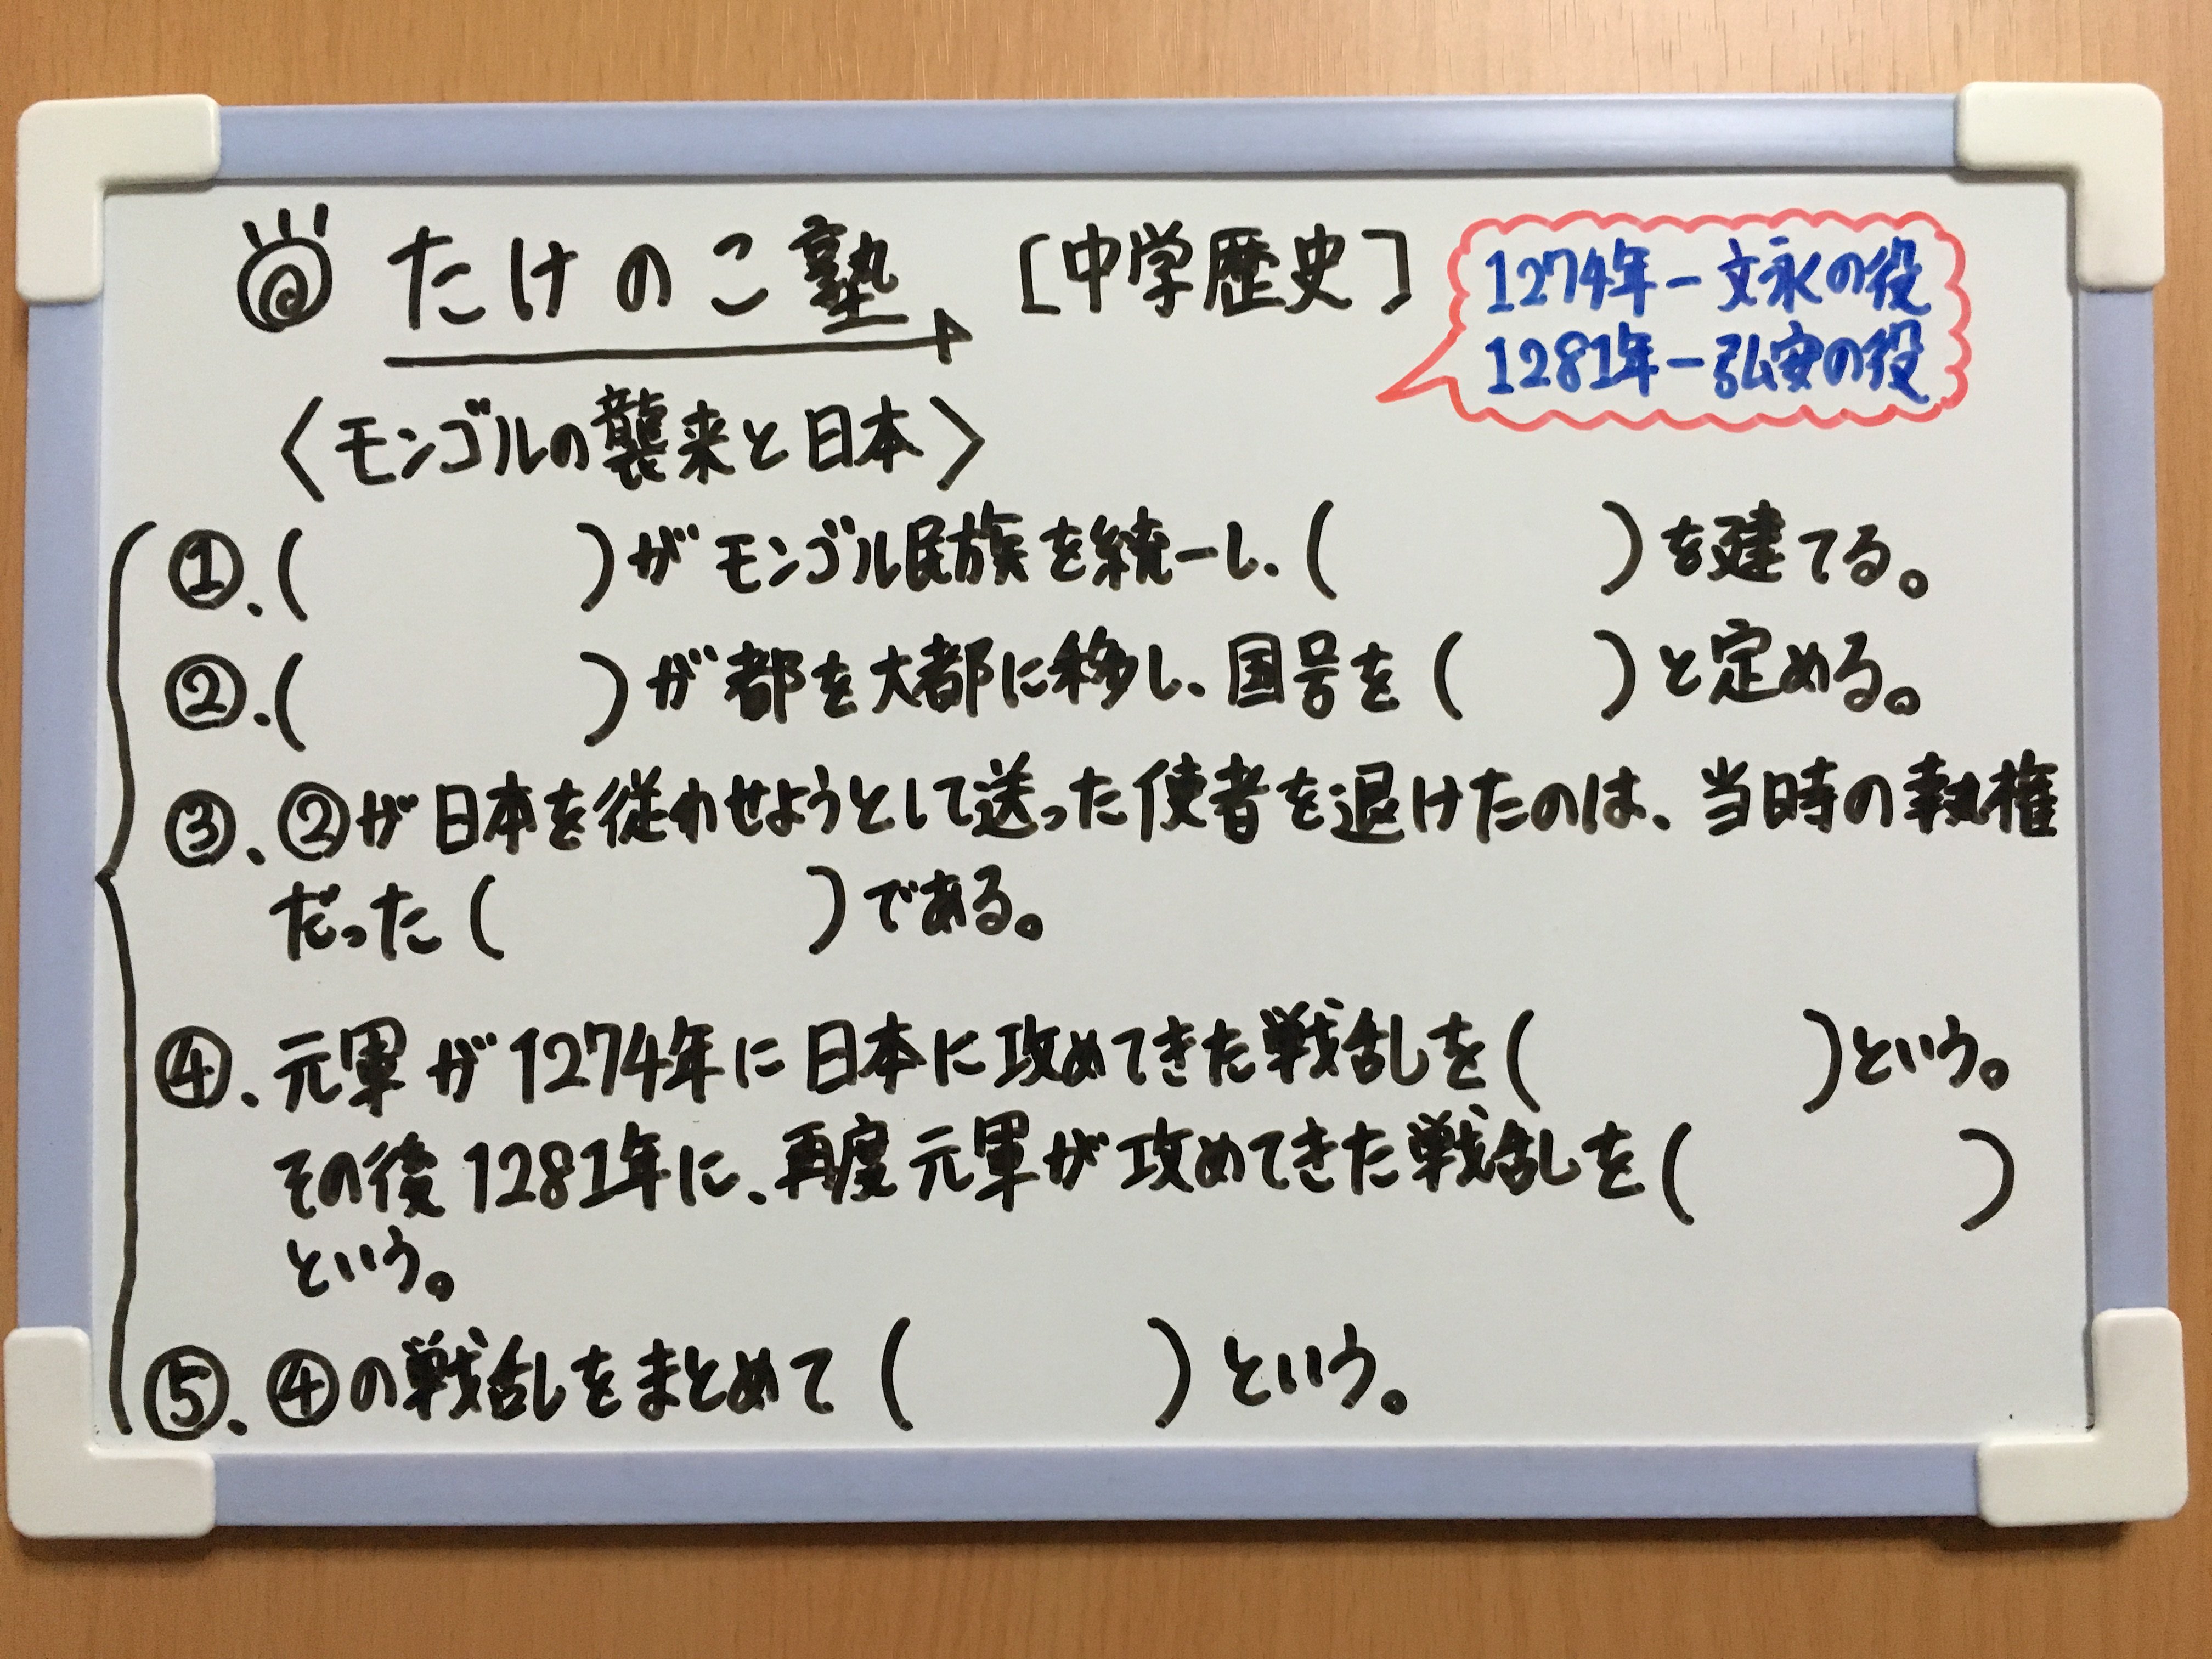 たけのこ塾 [中学歴史]
1274年-文永の役
1281年-弘安の役
〈モンゴルの襲来と日本〉
①.(　　　　)がモンゴル民族を統一し、(　　　　)を建てる。
②.(　　　　)が都を大都に移し、国号を(　　)と定める。
③.②が日本を従わせようとして送った使者を退けたのは、当時の執権
だった(　　　　)である。
④.元軍が1274年に日本に攻めてきた戦乱を(　　　　)という。
その後1281年に、再度元軍が攻めてきた戦乱を(　　　　)
という。
⑤.④の戦乱をまとめて(　　　　)という。